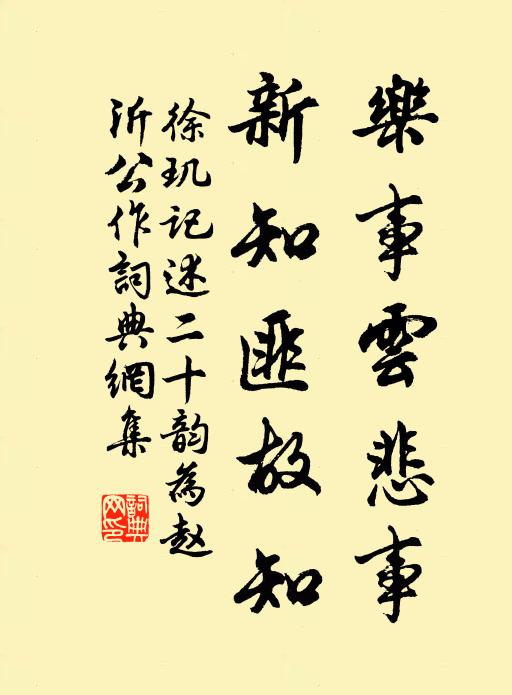 樂事雲悲事
新知匪故知
徐玑记述二十韵為赵
沂公作詞典網集
詞典網印